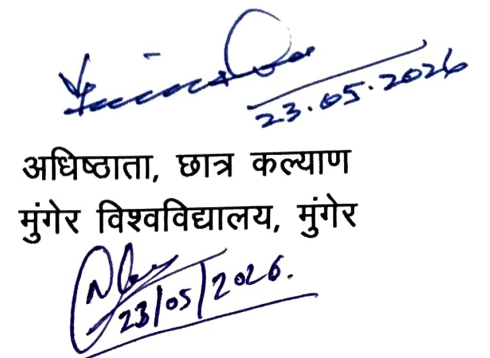 23.05.2026
अधिष्ठाता, छात्र कल्याण
मुंगेर विश्वविद्यालय, मुंगेर
23/05/2026.